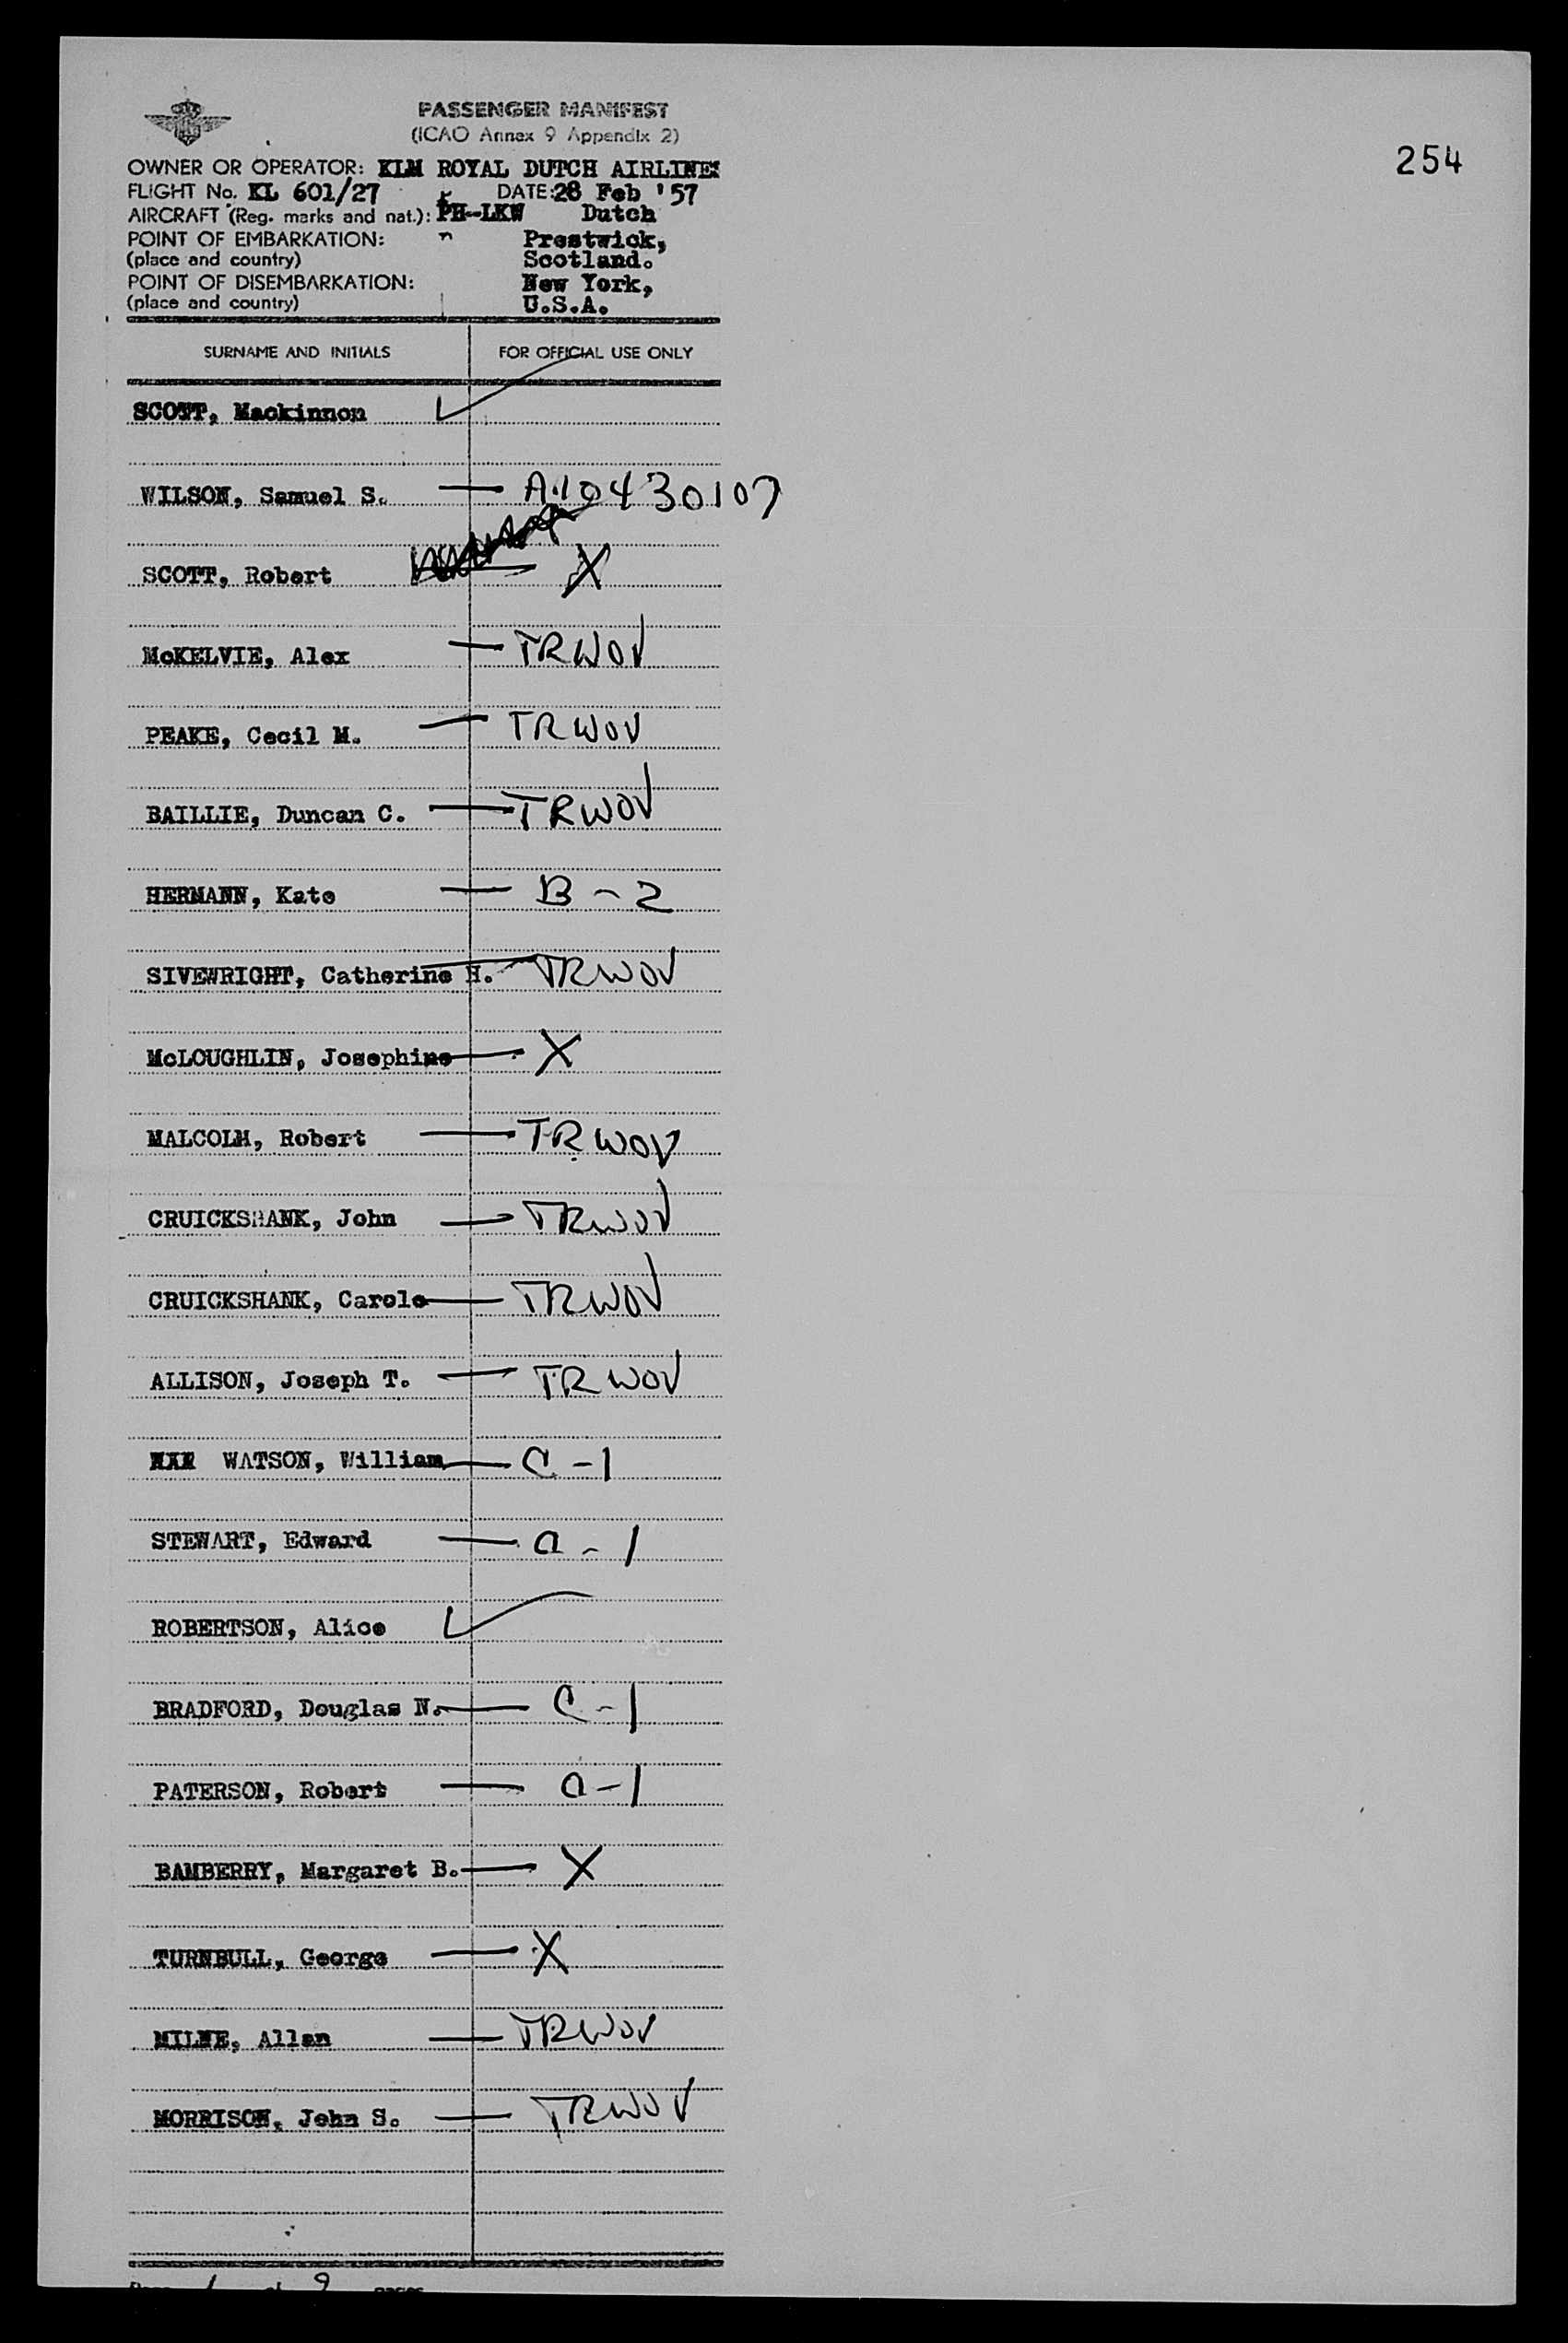 PASSENGER MANIFEST
(ICAO Annex 9 Appendix 2)
254
OWNER OR OPERATOR: KLM ROYAL DUTCH AIRLINES
FLIGHT No. KL 601/27 DATE: 28 Feb '57
AIRCRAFT (Reg. marks and nat.): PH-LKW Dutch
POINT OF EMBARKATION: Prestwick,
(place and country) Scotland.
POINT OF DISEMBARKATION: New York,
(place and country) U.S.A.
SURNAME AND INITIALS FOR OFFICIAL USE ONLY
SCOTT, Mackinnon
WILSON, Samuel S. — A10430107
SCOTT, Robert — X
McKELVIE, Alex — TRWOV
PEAKE, Cecil M. — TRWOV
BAILLIE, Duncan C. — TRWOV
HERMANN, Kate — B-2
SIVEWRIGHT, Catherine H. — TRWOV
McLOUGHLIN, Josephine — X
MALCOLM, Robert — TRWOV
CRUICKSHANK, John — TRWOV
CRUICKSHANK, Carole — TRWOV
ALLISON, Joseph T. — TRWOV
WATSON, William — C-1
STEWART, Edward — a-1
ROBERTSON, Alice
BRADFORD, Douglas N. — C-1
PATERSON, Robert — a-1
BAMBERRY, Margaret B. — X
TURNBULL, George — X
MILNE, Allan — TRWOV
MORRISON, John S. — TRWOV